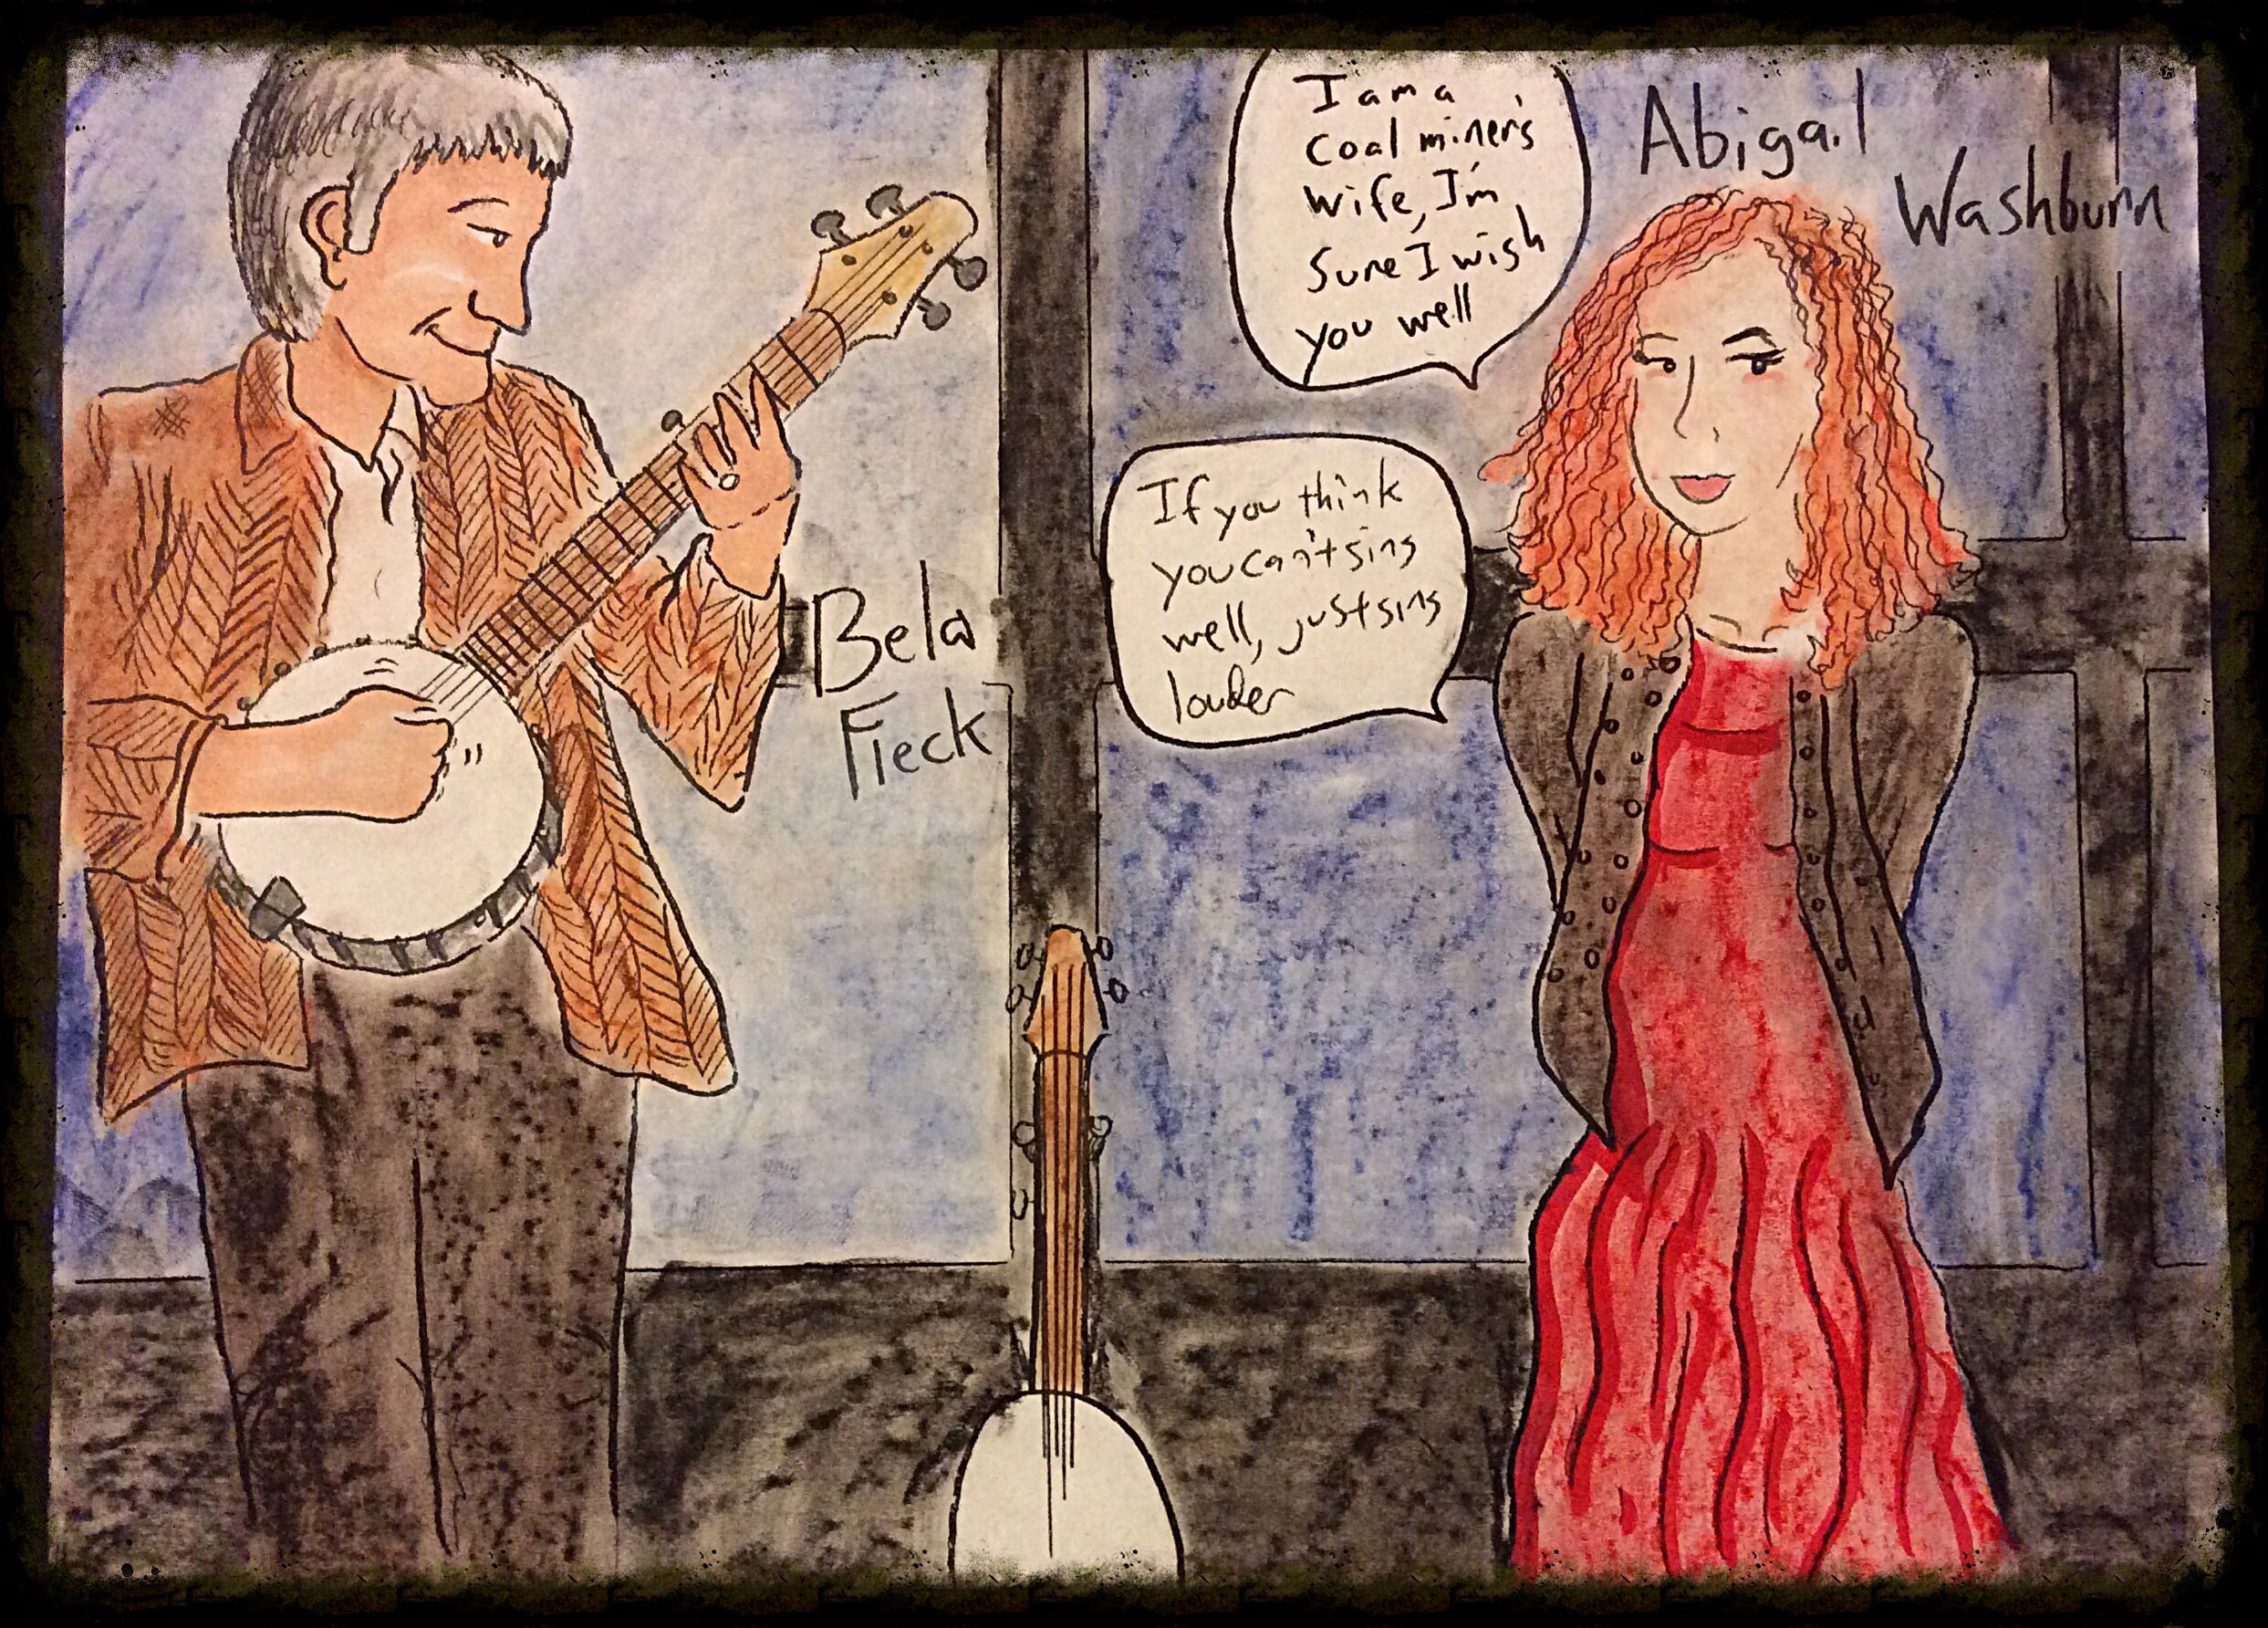 I am a
Coal miner's
Wife, I'm
Sure I wish
you well
Abigail
Washburn
If you think
you can't sing
well, just sing
louder
Bela
Fleck